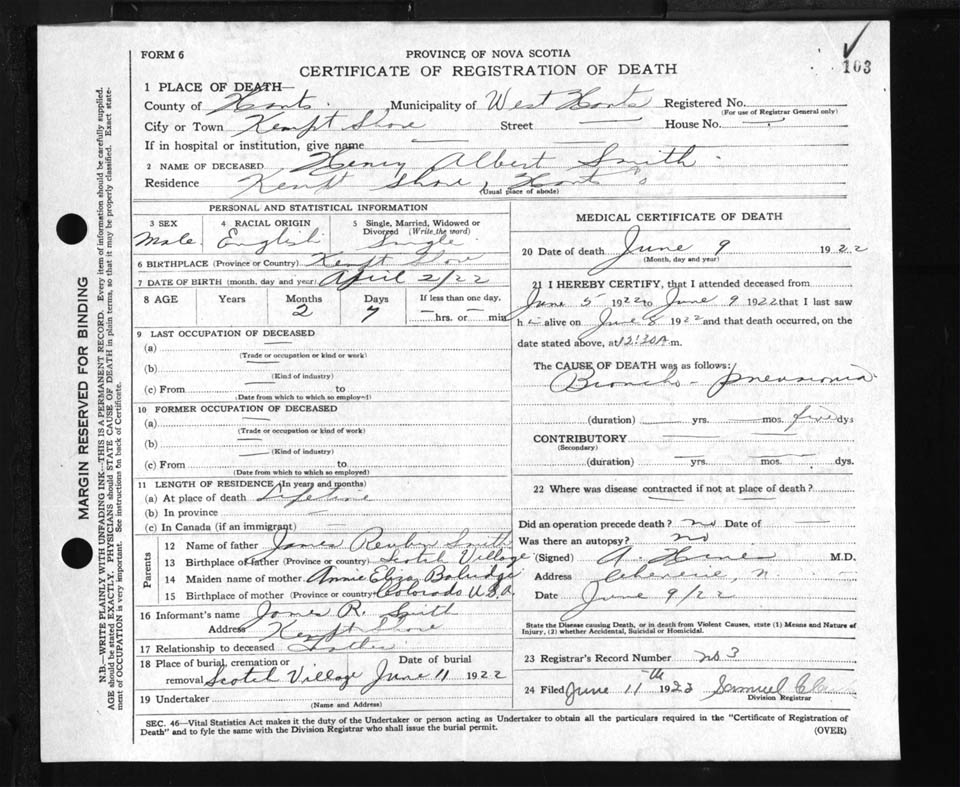 103
FORM 6
PROVINCE OF NOVA SCOTIA
CERTIFICATE OF REGISTRATION OF DEATH
1 PLACE OF DEATH—
County of Hants. Municipality of West Hants Registered No.
(For use of Registrar General only)
City or Town Kempt Shore Street — House No. —
If in hospital or institution, give name —
2 NAME OF DECEASED Henry Albert Smith
Residence Kempt Shore, Hants
(Usual place of abode)
PERSONAL AND STATISTICAL INFORMATION
3 SEX 4 RACIAL ORIGIN 5 Single, Married, Widowed or
Divorced (Write the word)
Male. English Single.
6 BIRTHPLACE (Province or Country) Kempt Shore
7 DATE OF BIRTH (month, day and year) April 2/22
8 AGE Years Months Days If less than one day.
2 7 — hrs. or — min
9 LAST OCCUPATION OF DECEASED
(a) —
(Trade or occupation or kind of work)
(b) —
(Kind of industry)
(c) From — to
(Date from which to which so employed)
10 FORMER OCCUPATION OF DECEASED
(a) —
(Trade or occupation or kind of work)
(b) —
(Kind of industry)
(c) From — to
(Date from which to which so employed)
11 LENGTH OF RESIDENCE (In years and months)
(a) At place of death Lifetime
(b) In province —
(c) In Canada (if an immigrant) —
Parents
12 Name of father James Reuben Smith
13 Birthplace of father (Province or country) Scotch Village
14 Maiden name of mother Annie Eliza
15 Birthplace of mother (Province or country) Colorado U.S.A.
16 Informant's name James R. Smith
Address Kempt Shore
17 Relationship to deceased Father
18 Place of burial, cremation or Date of burial
removal Scotch Village June 11 1922
19 Undertaker
(Name and Address)
MEDICAL CERTIFICATE OF DEATH
20 Date of death June 9 1922
(Month, day and year)
21 I HEREBY CERTIFY, that I attended deceased from
June 5 1922 to June 9 1922 that I last saw
h im alive on June 8 1922 and that death occurred, on the
date stated above, at 12:30 A. m.
The CAUSE OF DEATH was as follows:
Broncho-pneumonia.
(duration) — yrs. — mos. five dys
CONTRIBUTORY —
(Secondary)
(duration) — yrs. — mos. dys.
22 Where was disease contracted if not at place of death?
Did an operation precede death? no Date of —
Was there an autopsy? no
(Signed) A. M.D.
Address Cheverie, N.
Date June 9/22
State the Disease causing Death, or in death from Violent Causes, state (1) Means and Nature of
Injury, (2) whether Accidental, Suicidal or Homicidal.
23 Registrar's Record Number No 3
24 Filed June 11th 1922 Samuel
Division Registrar
SEC. 46—Vital Statistics Act makes it the duty of the Undertaker or person acting as Undertaker to obtain all the particulars required in the "Certificate of Registration of
Death" and to fyle the same with the Division Registrar who shall issue the burial permit.
(OVER)
MARGIN RESERVED FOR BINDING
N.B.—WRITE PLAINLY WITH UNFADING INK—THIS IS A PERMANENT RECORD. Every item of information should be carefully supplied.
AGE should be stated EXACTLY. PHYSICIANS should STATE CAUSE OF DEATH in plain terms, so that it may be properly classified. Exact state-
ment of OCCUPATION is very important. See instructions on back of Certificate.